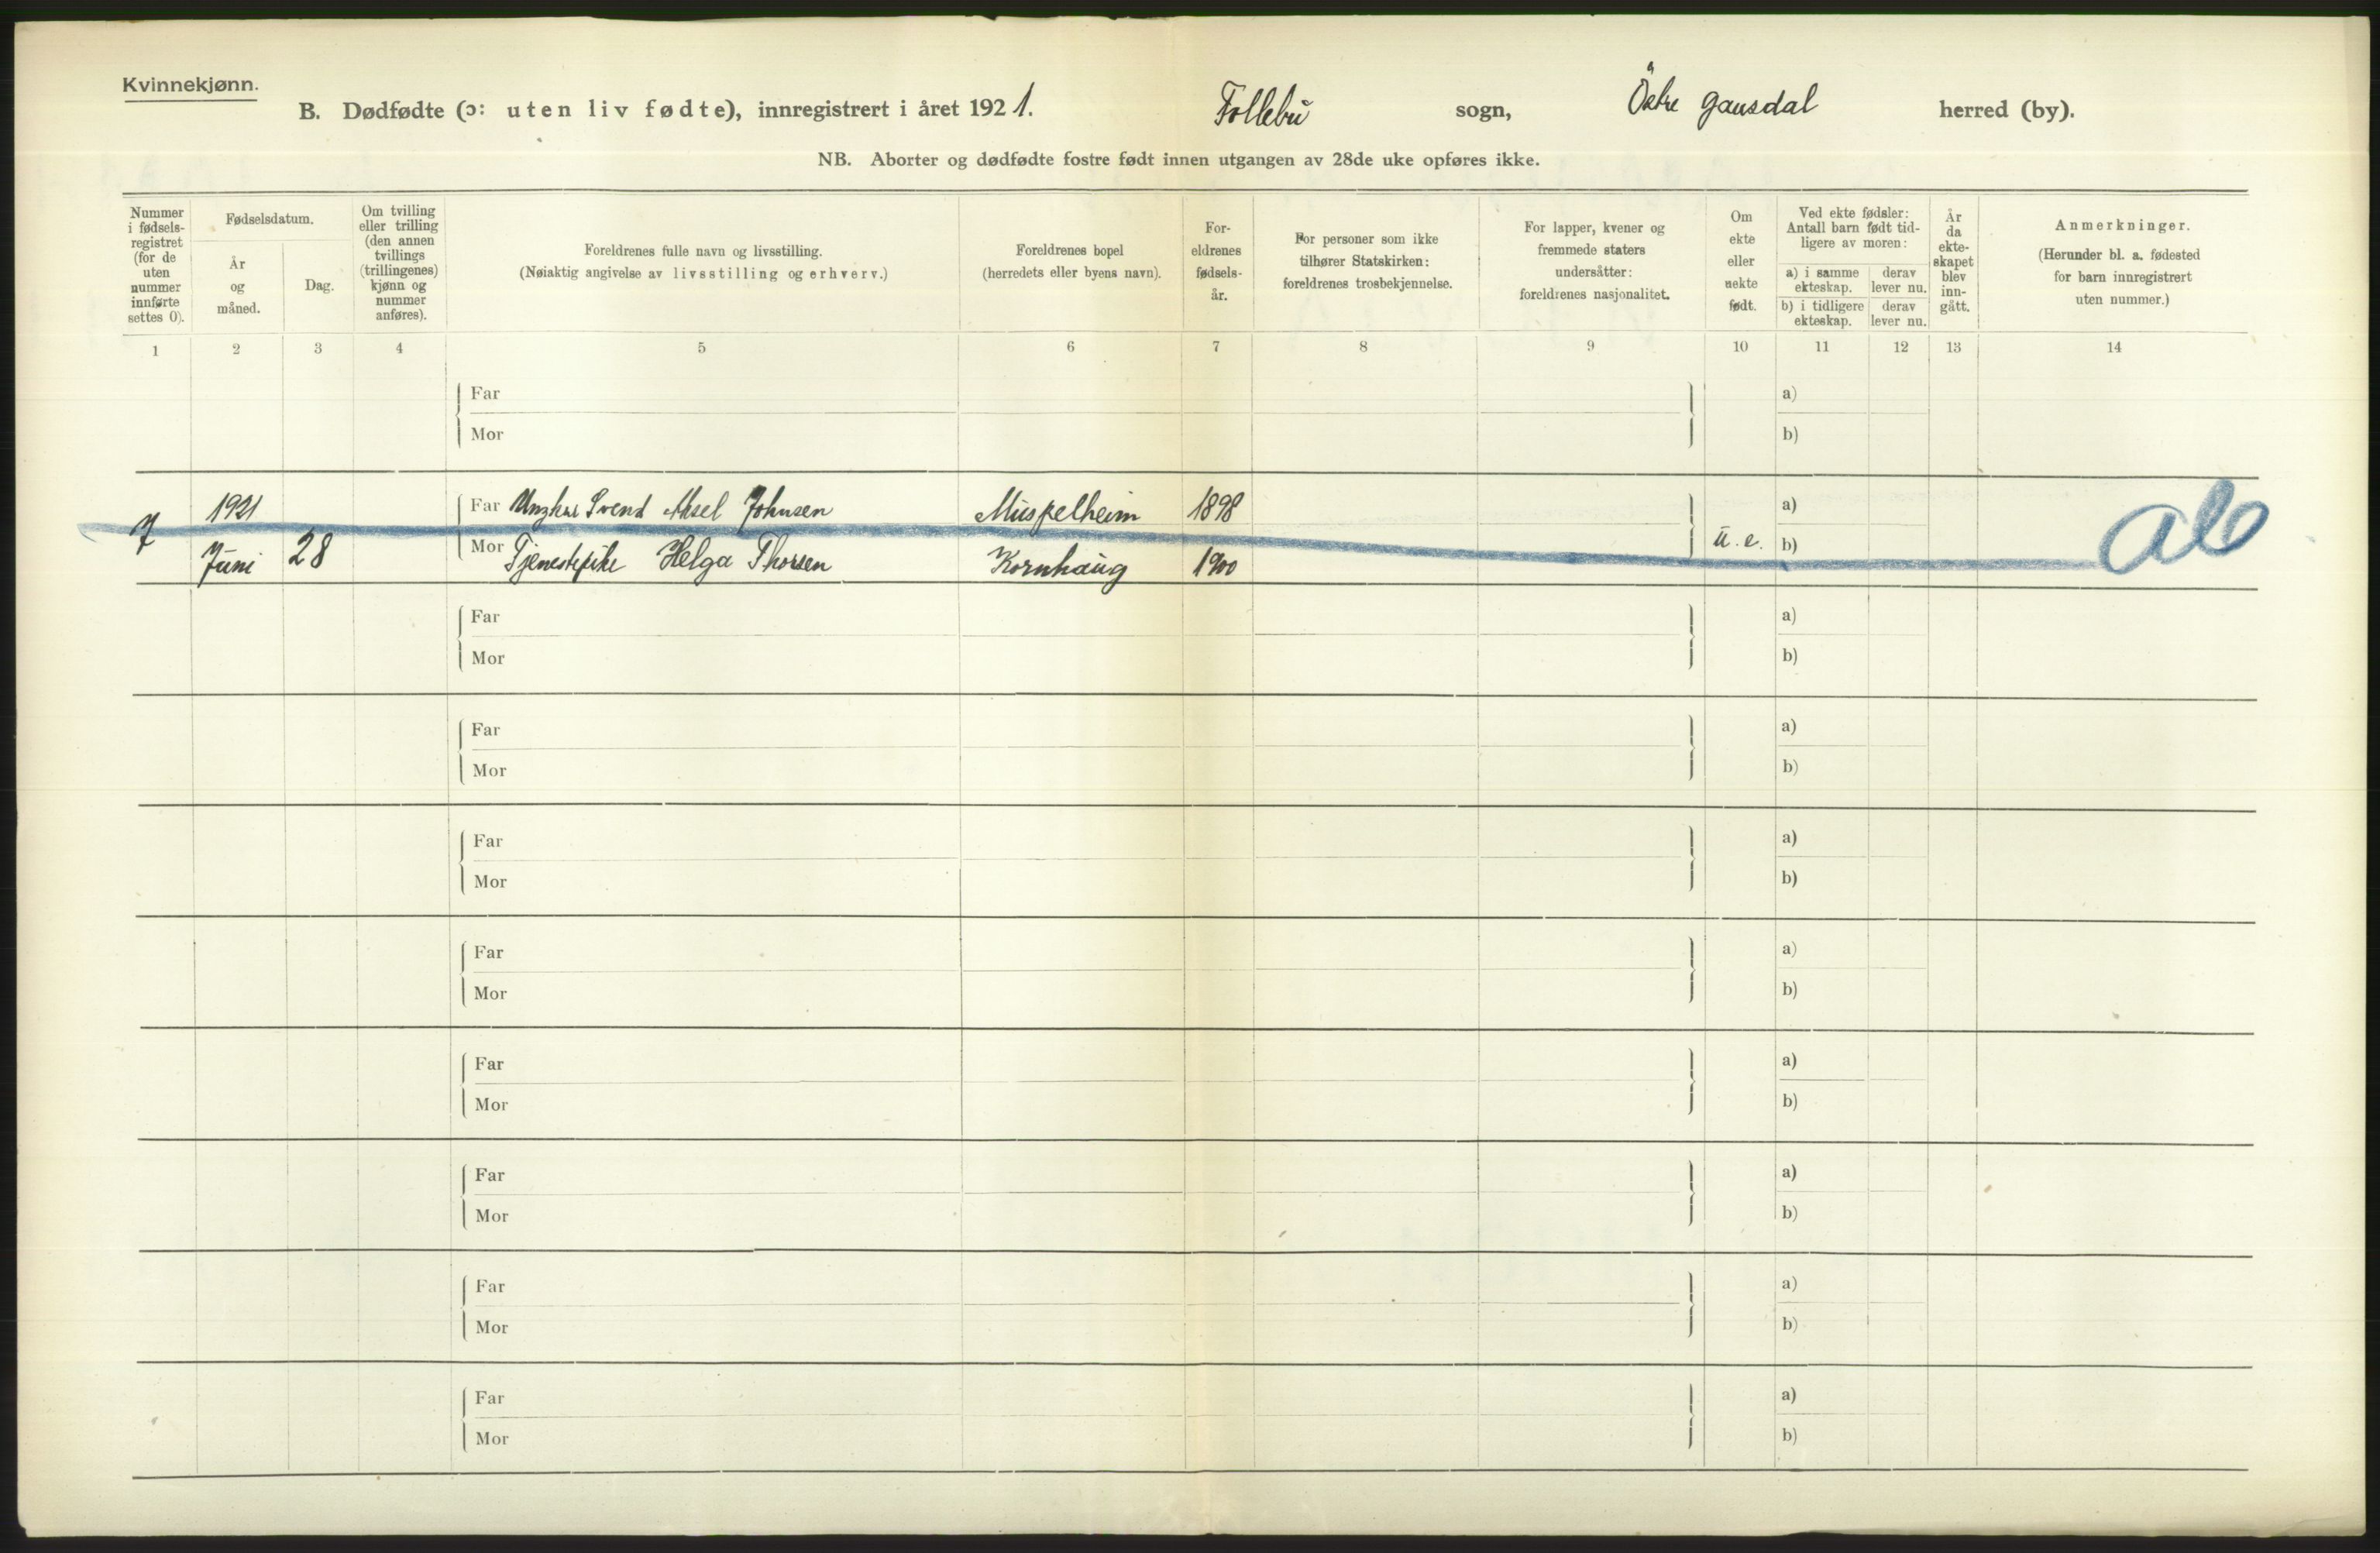 Kvinnekjønn.
B. Dødfødte (ɔ: uten liv fødte), innregistrert i året 1921. Follebu sogn, Östre Gausdal herred (by).
NB. Aborter og dødfødte fostre født innen utgangen av 28de uke opføres ikke.
Nummer i fødsels-registret (for de uten nummer innførte settes 0).
Fødselsdatum.
År og måned.
Dag.
Om tvilling eller trilling (den annen tvillings (trillingenes) kjønn og nummer anføres).
Foreldrenes fulle navn og livsstilling.
(Nøiaktig angivelse av livsstilling og erhverv.)
Foreldrenes bopel
(herredets eller byens navn).
For-eldrenes fødsels-år.
For personer som ikke tilhører Statskirken: foreldrenes trosbekjennelse.
For lapper, kvener og fremmede staters undersåtter: foreldrenes nasjonalitet.
Om ekte eller uekte født.
Ved ekte fødsler: Antall barn født tid-ligere av moren:
a) i samme ekteskap.
derav lever nu.
b) i tidligere ekteskap.
derav lever nu.
År da ekte-skapet blev inn-gått.
Anmerkninger.
(Herunder bl. a. fødested for barn innregistrert uten nummer.)
1 2 3 4 5 6 7 8 9 10 11 12 13 14
Far a)
Mor b)
7 1921 Far Ungkar Svend Aksel Johnsen Muspelheim 1898 a)
Juni 28 Mor Tjenestepike Helga Thorsen Kornhaug 1900 u. e. b)
Far a)
Mor b)
Far a)
Mor b)
Far a)
Mor b)
Far a)
Mor b)
Far a)
Mor b)
Far a)
Mor b)
Far a)
Mor b)
Far a)
Mor b)